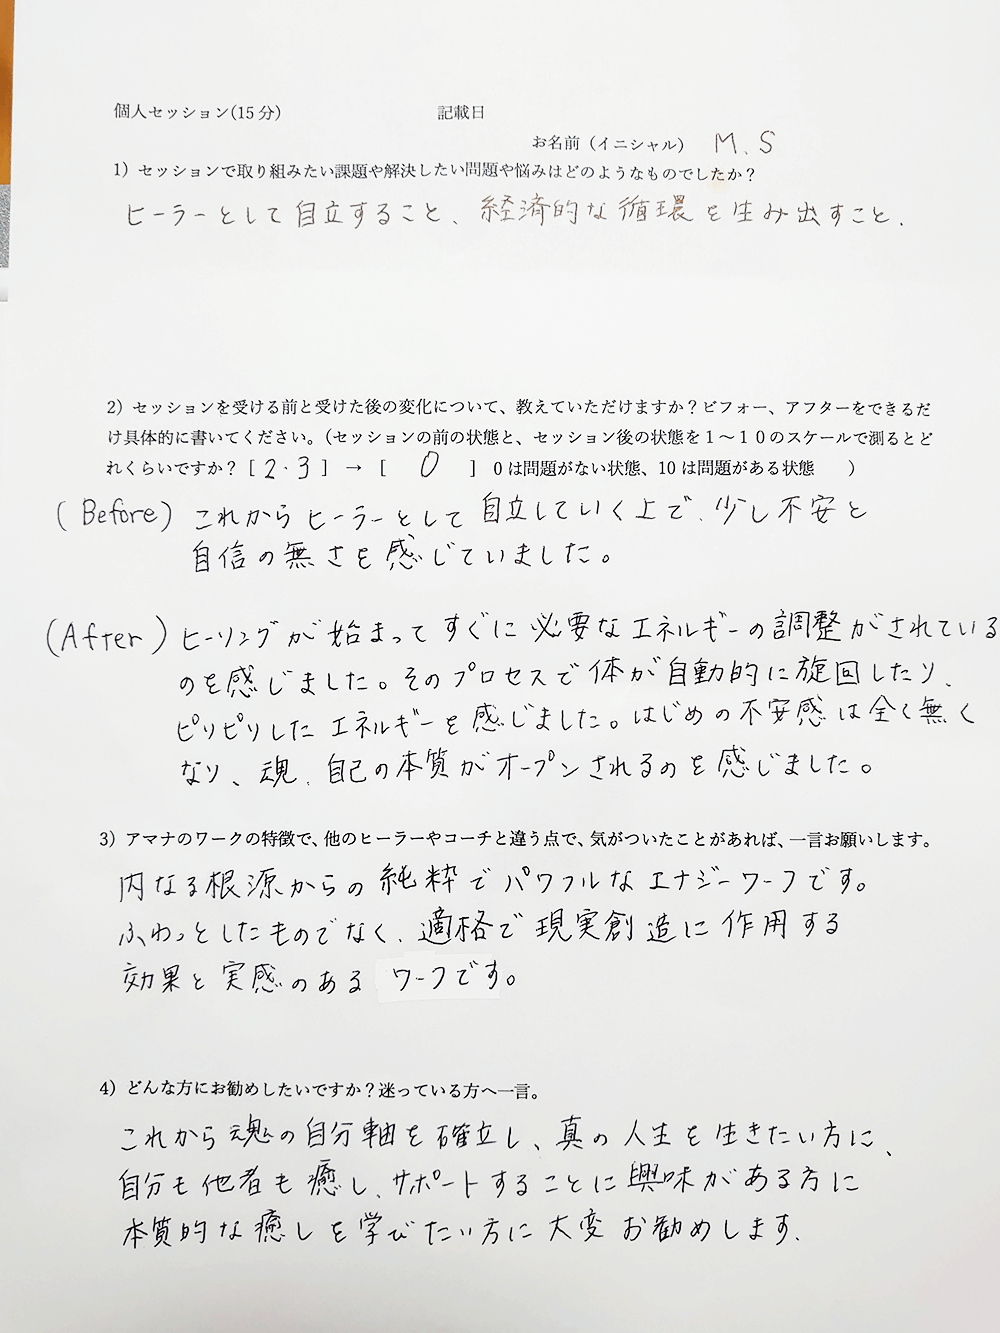 個人セッション(15分)　記載日
お名前（イニシャル） M.S
1）セッションで取り組みたい課題や解決したい問題や悩みはどのようなものでしたか？
ヒーラーとして自立すること、経済的な循環を生み出すこと.
2）セッションを受ける前と受けた後の変化について、教えていただけますか？ビフォー、アフターをできるだ
け具体的に書いてください。（セッションの前の状態と、セッション後の状態を１～１０のスケールで測るとど
れくらいですか？［ 2・3 ］→［ 0 ］0は問題がない状態、10は問題がある状態　）
(Before) これからヒーラーとして自立していく上で、少し不安と
自信の無さを感じていました。
(After) ヒーリングが始まってすぐに必要なエネルギーの調整がされている
のを感じました。そのプロセスで体が自動的に旋回したり、
ピリピリしたエネルギーを感じました。はじめの不安感は全く無く
なり、魂、自己の本質がオープンされるのを感じました。
3）アマナのワークの特徴で、他のヒーラーやコーチと違う点で、気がついたことがあれば、一言お願いします。
内なる根源からの純粋でパワフルなエナジーワークです。
ふわっとしたものでなく、適格で現実創造に作用する
効果と実感のあるワークです。
4）どんな方にお勧めしたいですか？迷っている方へ一言。
これから魂の自分軸を確立し、真の人生を生きたい方に、
自分も他者も癒し、サポートすることに興味がある方に
本質的な癒しを学びたい方に大変お勧めします.